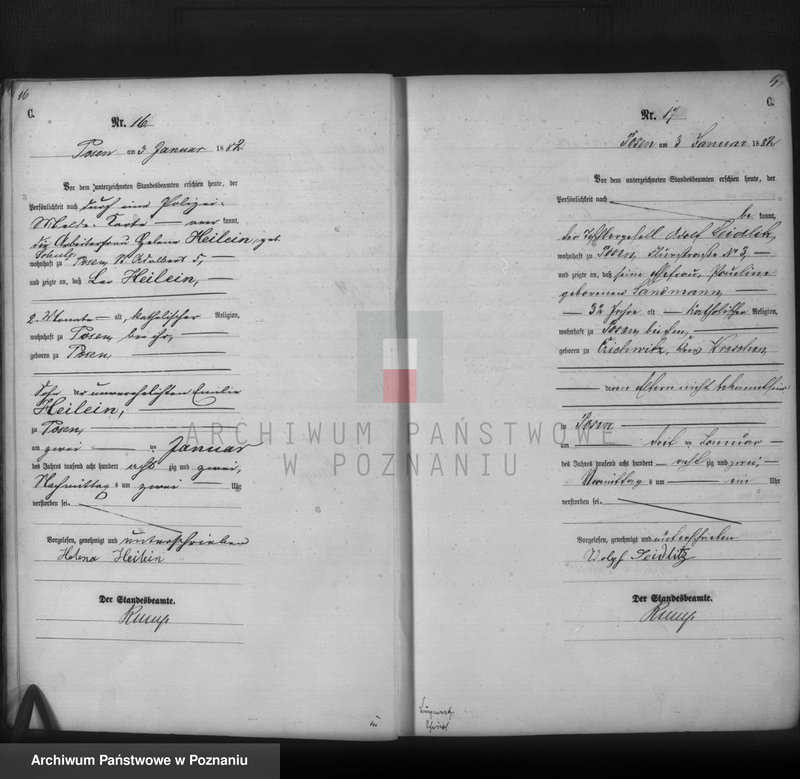 16
C.
Nr. 16
Posen am 3 Januar 1882
Vor dem unterzeichneten Standesbeamten erschien heute, der
Persönlichkeit nach durch eine Polizei-
Melde-Karte kannt,
die Arbeiterfrau Helene Heilein, geb.
Schulz
wohnhaft zu Posen St. Adalbert 5,
und zeigte an, daß Leo Heilein,
2 Monate alt, katholischer Religion,
wohnhaft zu Posen bei ihr,
geboren zu Posen,
Sohn der unverehelichten Emilie
Heilein,
zu Posen,
am zwei ten Januar
des Jahres tausend acht hundert acht zig und zwei,
Nachmittags um zwei Uhr
verstorben sei.
Vorgelesen, genehmigt und unterschrieben
Helena Heilein
Der Standesbeamte.
17
C.
Nr. 17
Posen am 3 Januar 1882
Vor dem unterzeichneten Standesbeamten erschien heute, der
Persönlichkeit nach
be kannt,
der Tischlergesell Adolf Seidlitz,
wohnhaft zu Posen, № 3,
und zeigte an, daß seine Ehefrau, Pauline
geborenen Sandmann
32 Jahre alt katholischer Religion,
wohnhaft zu Posen bei ihm,
geboren zu Kreis Wreschen
deren Eltern nicht bekannt sind
zu Posen
am drei ten Januar
des Jahres tausend acht hundert acht zig und zwei,
Vormittags um ein Uhr
verstorben sei.
Vorgelesen, genehmigt und unterschrieben
Adolph Seidlitz
Der Standesbeamte.
ARCHIWUM PAŃSTWOWE
W POZNANIU
Archiwum Państwowe w Poznaniu